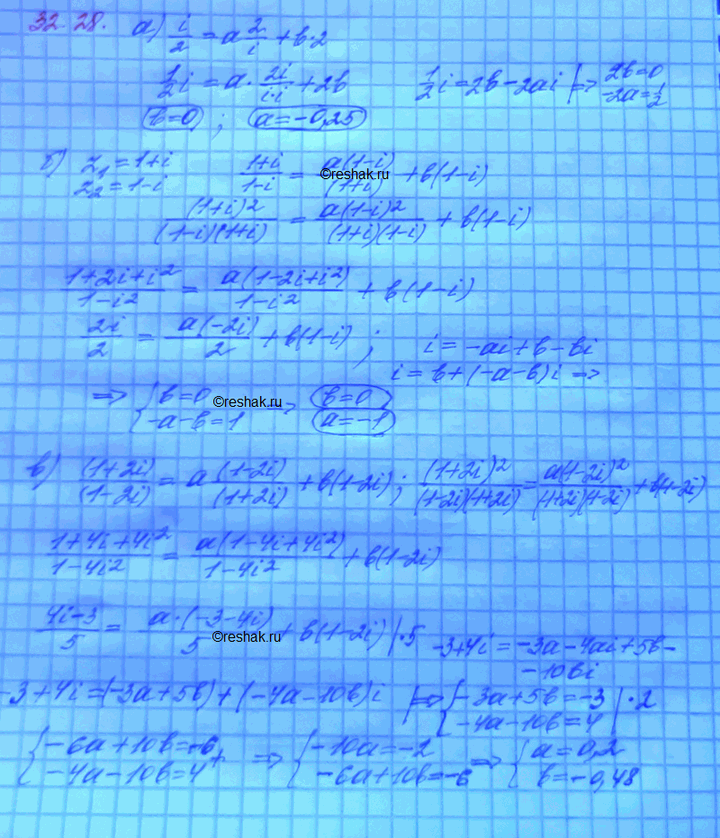 32.28. а) i/2 = a 2/i + b·2
1/2 i = a · 2i/(i·i) + 2b     1/2 i = 2b - 2ai | => 2b=0
-2a = 1/2
b=0 ; a=-0,25
б) z₁ = 1+i     (1+i)/(1-i) = a(1-i)/(1+i) + b(1-i)
z₂ = 1-i
©reshak.ru
(1+i)²/((1-i)(1+i)) = a(1-i)²/((1+i)(1-i)) + b(1-i)
(1+2i+i²)/(1-i²) = a(1-2i+i²)/(1-i²) + b(1-i)
2i/2 = a(-2i)/2 + b(1-i) ;     i = -ai+b-bi
i = b+(-a-b)i =>
=> { b=0     => b=0
-a-b=1     a=-1
©reshak.ru
в) (1+2i)/(1-2i) = a (1-2i)/(1+2i) + b(1-2i) ; (1+2i)²/((1-2i)(1+2i)) = a(1-2i)²/((1+2i)(1-2i)) + b(1-2i)
(1+4i+4i²)/(1-4i²) = a(1-4i+4i²)/(1-4i²) + b(1-2i)
(4i-3)/5 = a·(-3-4i)/5 + b(1-2i) |·5     -3+4i = -3a-4ai+5b-
-10bi
©reshak.ru
-3+4i = (-3a+5b)+(-4a-10b)i |=> { -3a+5b=-3 |·2
-4a-10b=4
{ -6a+10b=-6 +     => { -10a=-2     => { a=0,2
-4a-10b=4     -6a+10b=-6     b=-0,48